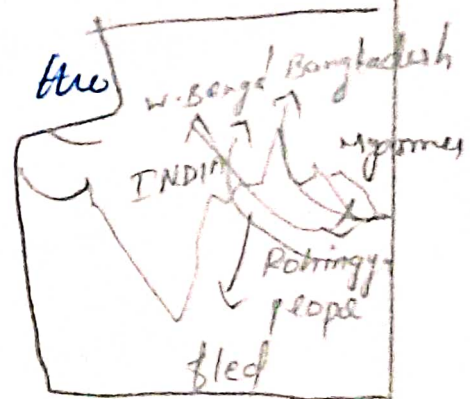 the
W. Bengal Bangladesh
Myanmar
INDIA
Rohingya
people
fled